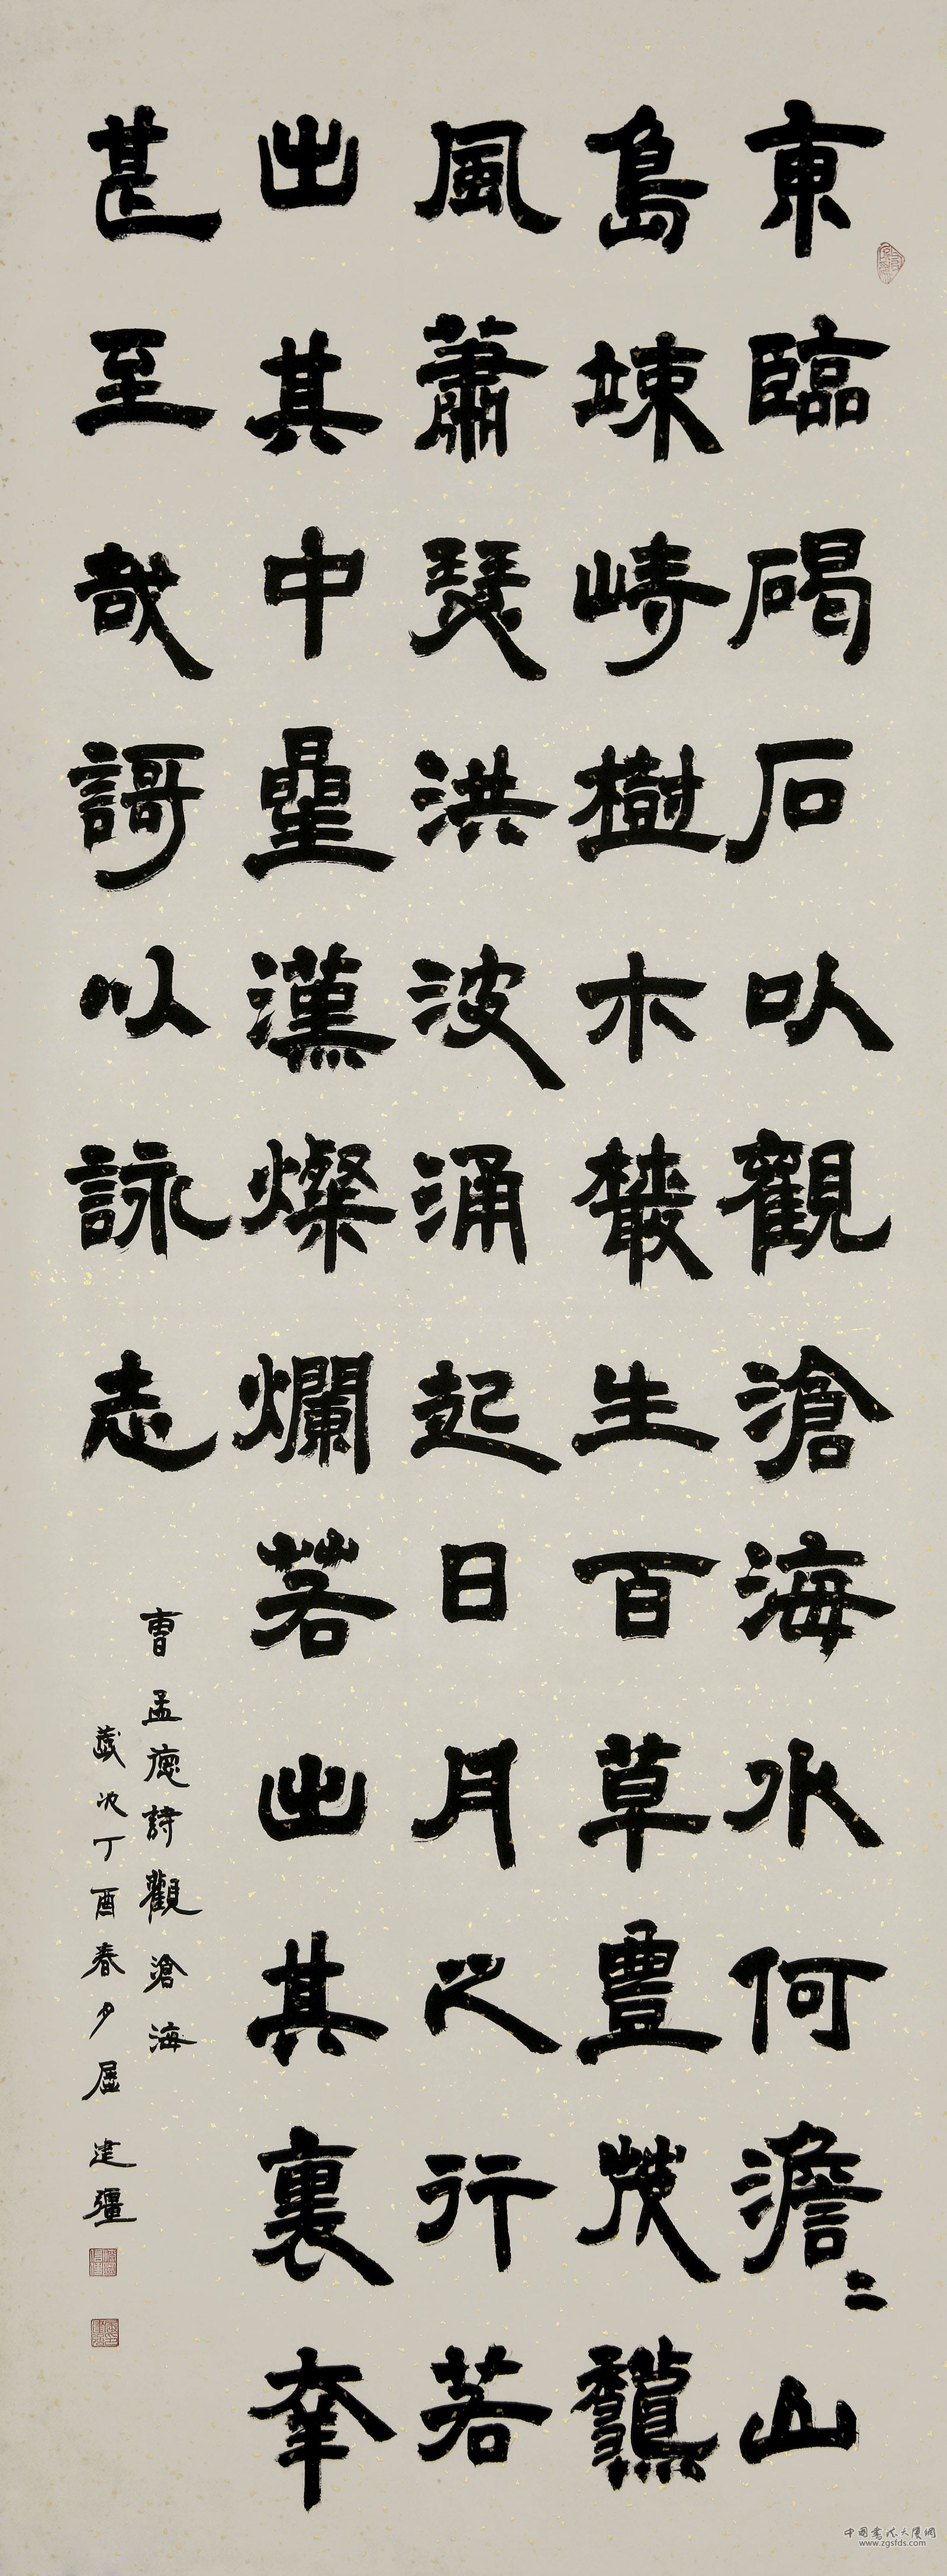 東臨碣石以觀滄海水何澹二山
島竦峙樹木叢生百草豐茂龝
風蕭瑟洪波涌起日月之行若
出其中曐漢燦爛若出其裏幸
甚至哉謌以詠志
曹孟德詩觀滄海
歲次丁酉春月屈建疆
中国書法大厦網
www.zgsfds.com